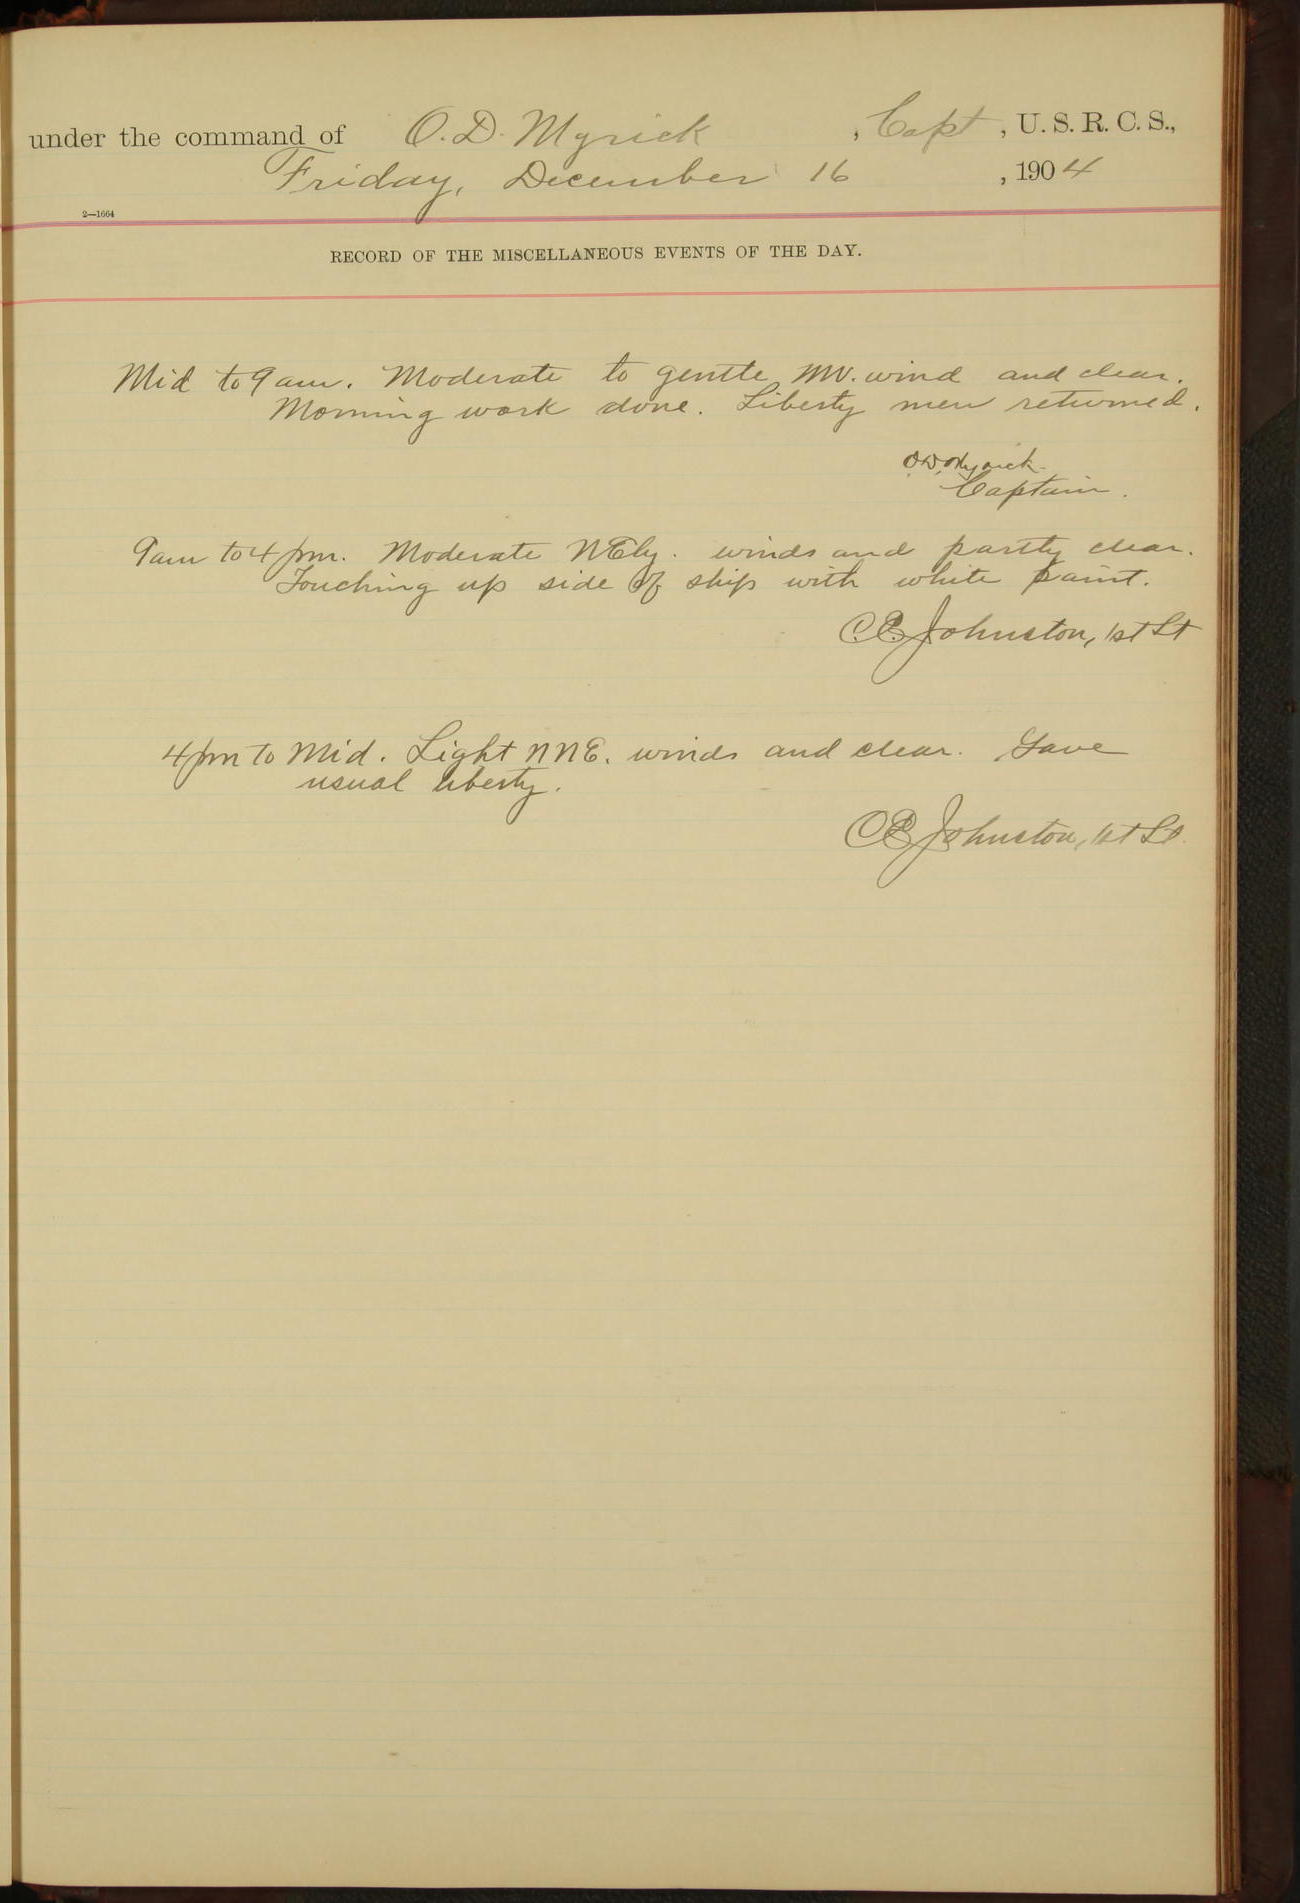 under the command of O. D. Myrick, Capt, U. S. R. C. S.,
Friday, December 16, 1904
2—1664
RECORD OF THE MISCELLANEOUS EVENTS OF THE DAY.
Mid to 9 am. Moderate to gentle NW. wind and clear.
Morning work done. Liberty men returned.
O.D. Myrick
Captain.
9am to 4 pm. Moderate NEly. winds and partly clear.
Touching up side of ship with white paint.
C.E. Johnston, 1st Lt
4pm to Mid. Light NNE. winds and clear. Gave
usual liberty.
CE Johnston, 1st Lt.